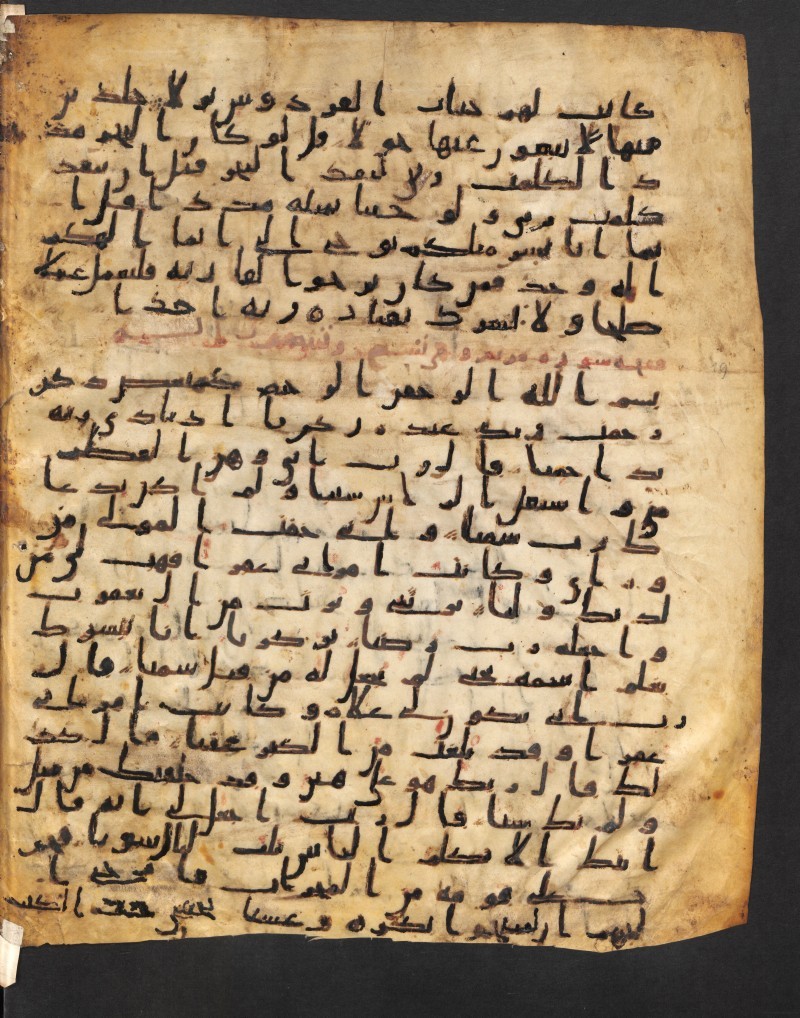 كانت لهم جنات الفردوس نزلا خلدين
فيها لا يبغون عنها حولا قل لو كان البحر مد
دا لكلمت ربي لنفد البحر قبل ان تنفد
كلمت ربي ولو جينا بمثله مددا قل ا
نما انا بشر مثلكم يوحى الي انما الهكم
اله وحد فمن كان يرجوا لقا ربه فليعمل عملا
صلحا ولا يشرك بعباده ربه احدا
سوره مريم
بسم الله الرحمن الرحيم كهيعص ذكر
رحمت ربك عبده زكريا اذ نادى ربه
ندا خفيا قال رب اني وهن العظم
مني واشتعل الراس شيبا ولم اكن بدعا
ك رب شقيا واني خفت المولي من
وراي وكانت امراتي عقرا فهب لي من
لدنك وليا يرثني ويرث من ال يعقوب
واجعله رب رضيا يزكريا انا نبشرك
بغلم اسمه يحيى لم نجعل له من قبل سميا قال
رب انى يكون لي غلم وكانت امراتي
عقرا وقد بلغت من الكبر عتيا قال كذ
لك قال ربك هو علي هين وقد خلقتك من قبل
ولم تك شيا قال رب اجعل لي ايه قال
ايتك الا تكلم الناس ثلث ليال سويا فخر
ج على قومه من المحراب فاوحى ا
ليهم ان سبحوا بكره وعشيا الكتب